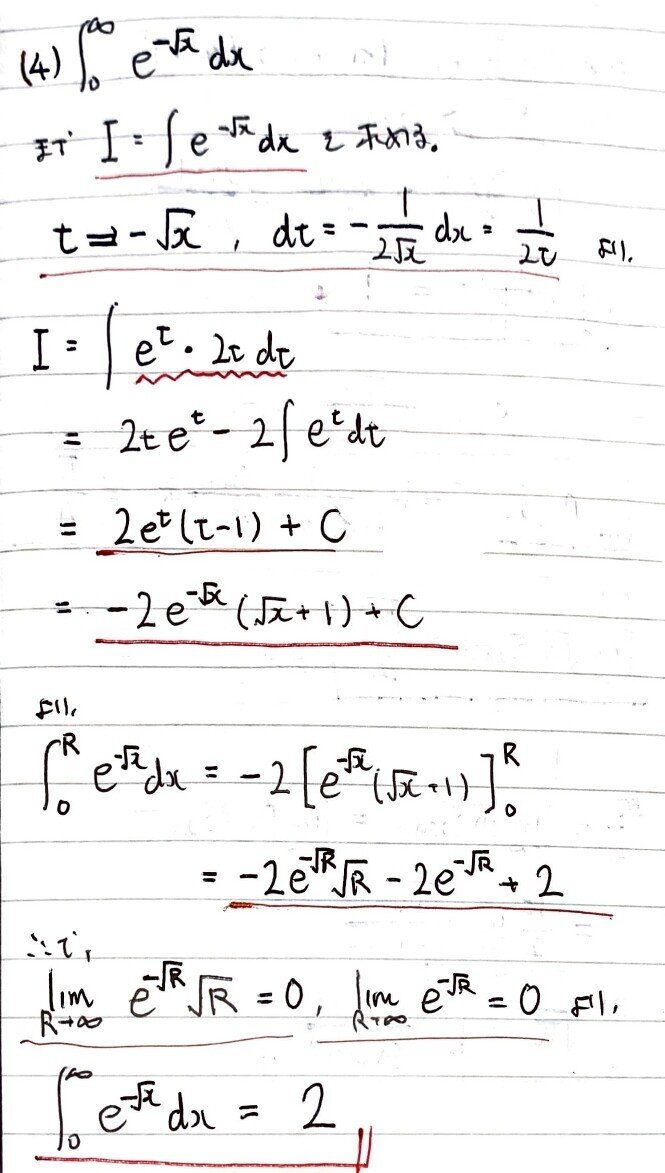 (4) ∫₀^∞ e^{-√x} dx
まず I = ∫ e^{-√x} dx を求める.
t = -√x , dt = -1/(2√x) dx = 1/(2t) より,
I = ∫ e^t · 2t dt
= 2t e^t - 2∫ e^t dt
= 2e^t (t-1) + C
= -2e^{-√x} (√x+1) + C
より,
∫₀^R e^{-√x} dx = -2[e^{-√x} (√x+1)]₀^R
= -2e^{-√R} √R - 2e^{-√R} + 2
ここで,
lim_{R→∞} e^{-√R} √R = 0, lim_{R→∞} e^{-√R} = 0 より,
∫₀^∞ e^{-√x} dx = 2